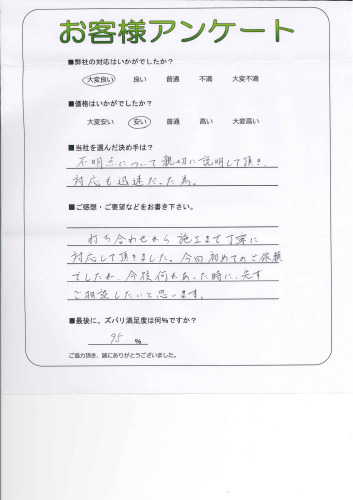 お客様アンケート
■弊社の対応はいかがでしたか？
大変良い 良い 普通 不満 大変不満
■価格はいかがでしたか？
大変安い 安い 普通 高い 大変高い
■当社を選んだ決め手は？
不明点について親切に説明して頂き、
対応も迅速だった為。
■ご感想・ご要望などをお書き下さい。
打ち合わせから施工まで丁寧に
対応して頂きました。今回初めてのご依頼
でしたが、今後何かあった時に、先ず
ご相談したいと思います。
■最後に、ズバリ満足度は何％ですか？
95 %
ご協力頂き、誠にありがとうございました。